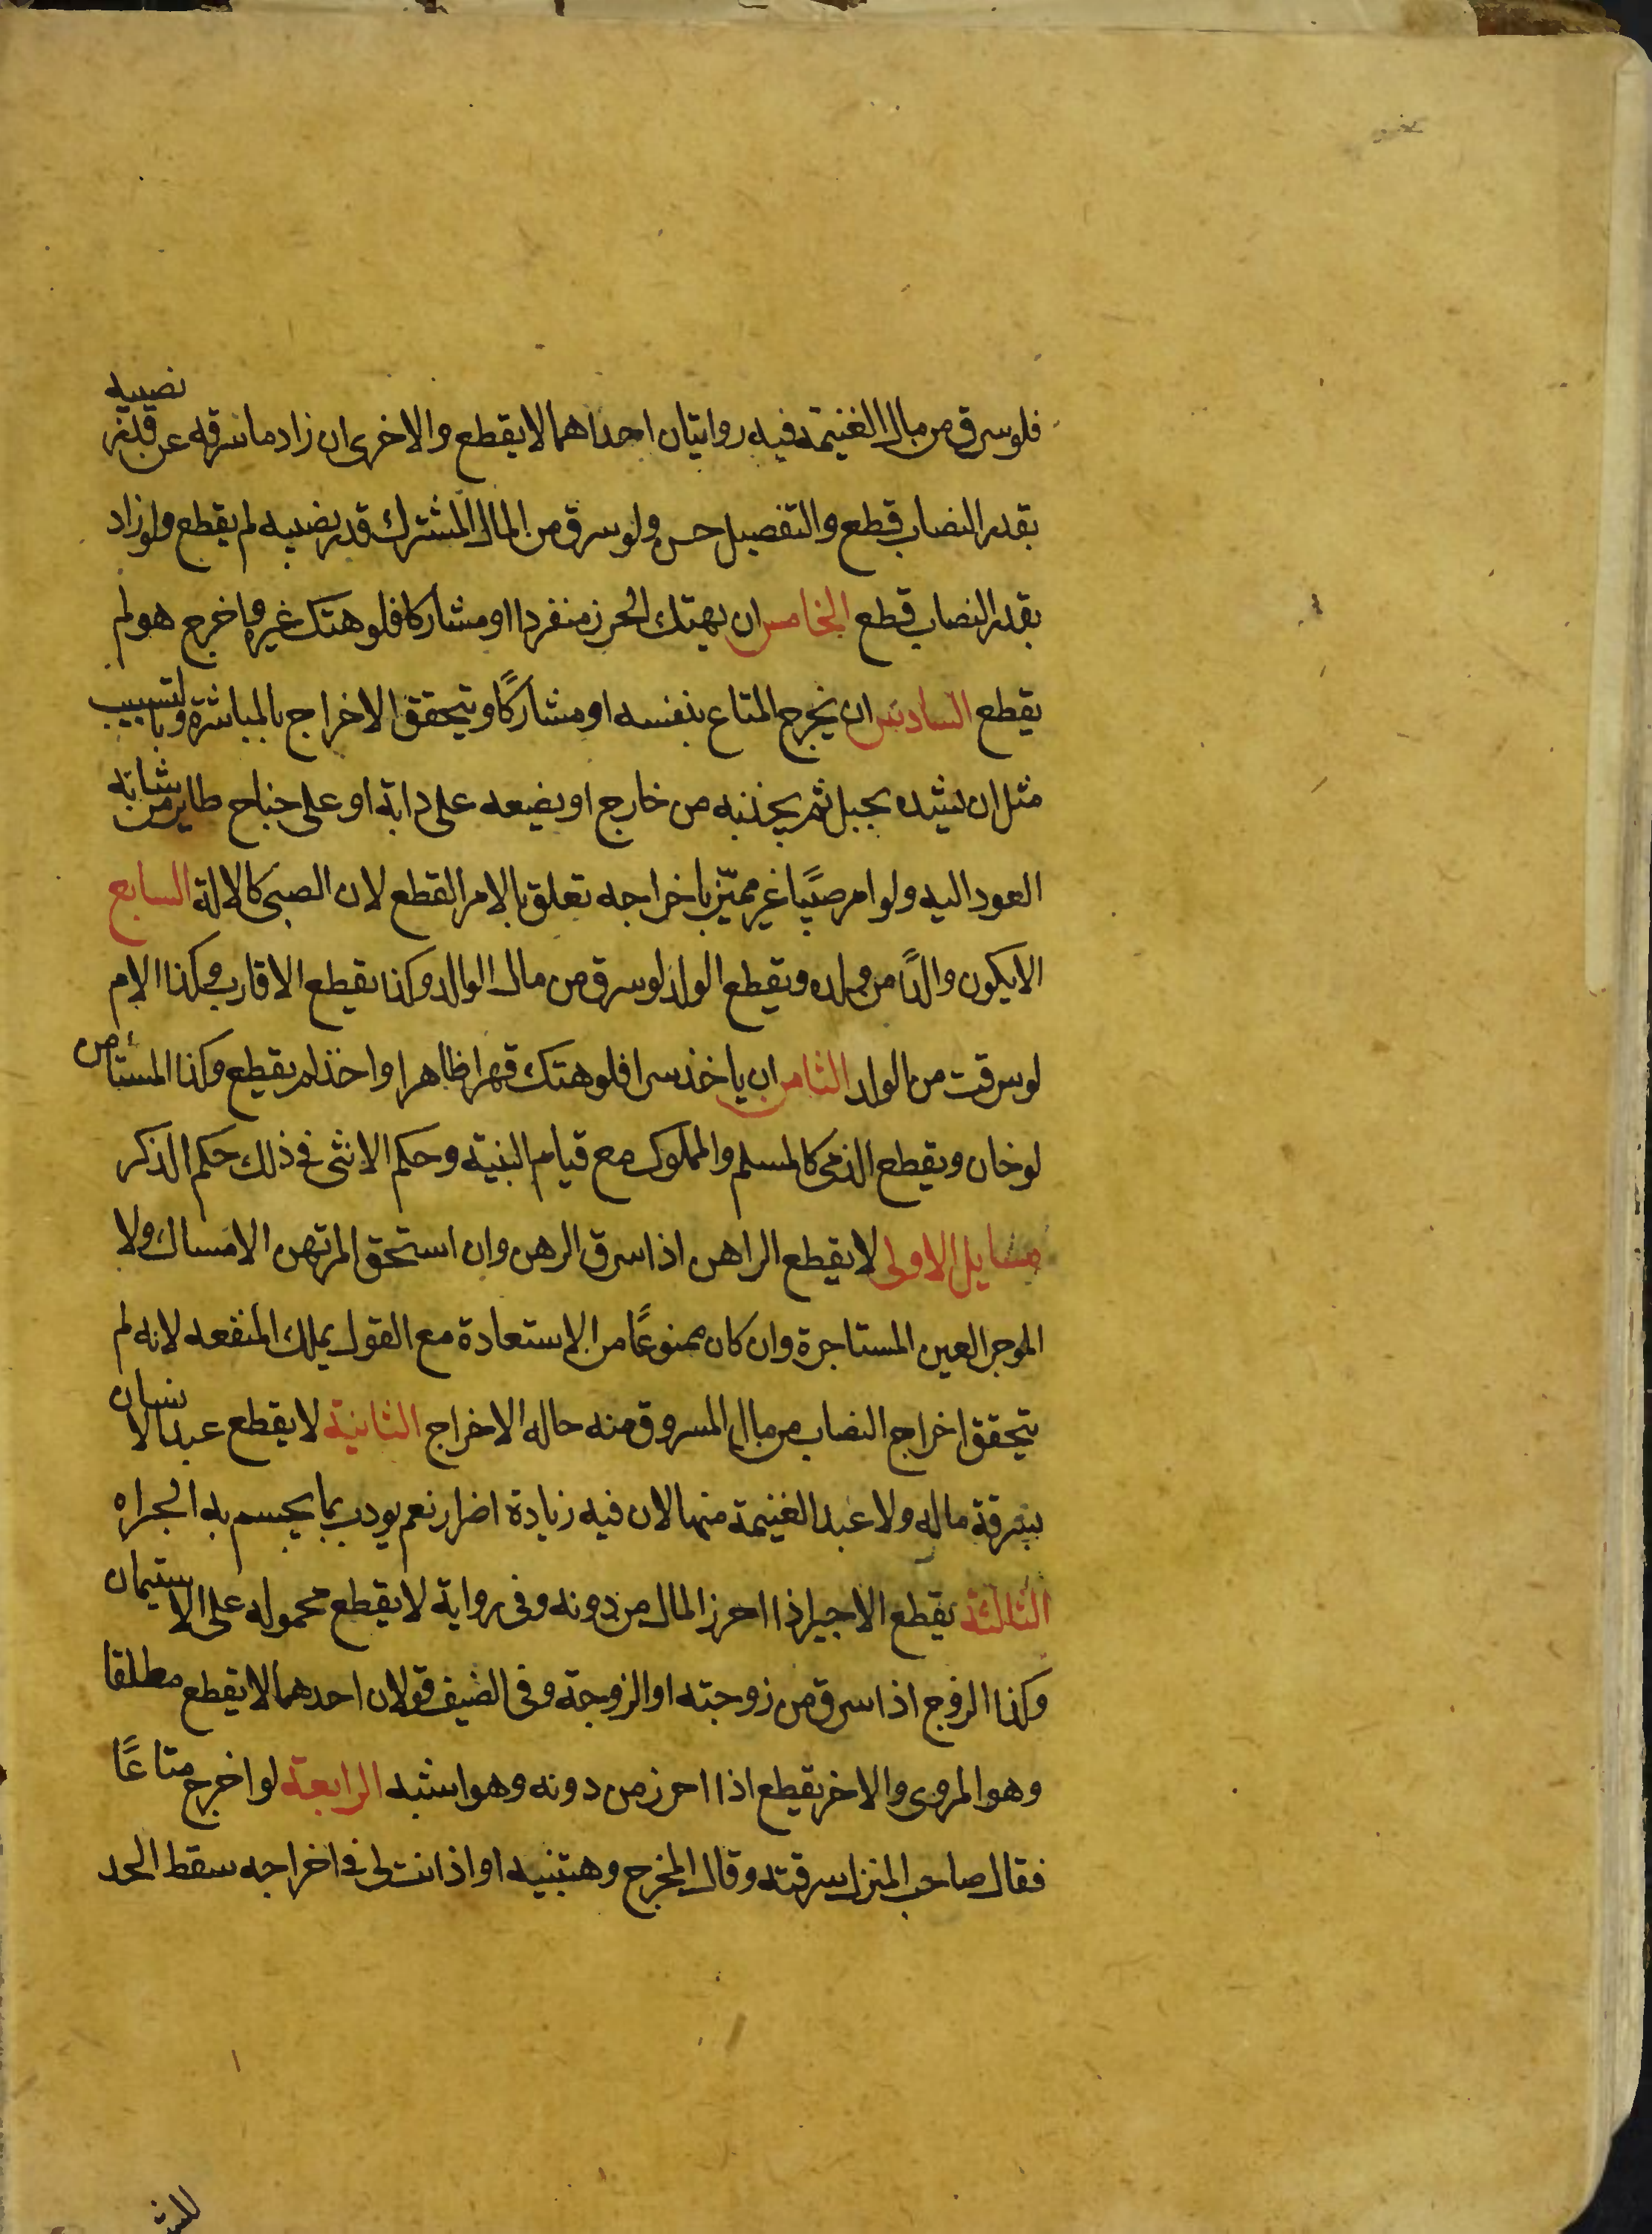 فلو سرق من مال الغنيمة فيه روايتان احداهما لا يقطع والاخرى ان زاد ما سرقه عن قدر نصيبه
بقدر النصاب قطع والتفصيل حسن ولو سرق من المال المشترك قدر نصيبه لم يقطع ولو زاد
بقدر النصاب قطع الخامس ان يهتك الحرز منفردا او مشاركا فلو هتك غيره واخرج هو لم
يقطع السادس ان يخرج المتاع بنفسه او مشاركًا ويتحقق الاخراج بالمباشرة وبالتسبيب
مثل ان يشده بحبل ثم يجذبه من خارج او يضعه على دابة او على جناح طاير من شانه
العود اليه ولو امر صبيًا غير مميّز باخراجه تعلق بالامر القطع لان الصبي كالالة السابع
الا يكون والدًا من ولده ويقطع الولد لو سرق من مال الوالد وكذا يقطع الاقارب وكذا الام
لو سرقت من الولد الثامن ان ياخذ سرا فلو هتك قهرا ظاهرا واخذ لم يقطع وكذا المستأمن
لو خان ويقطع الذمي كالمسلم والمملوك مع قيام البنية وحكم الانثى في ذلك حكم الذكر
مسايل الاولى لا يقطع الراهن اذا سرق الرهن وان استحق المرتهن الامساك ولا
الموجر العين المستاجرة وان كان ممنوعًا من الاستعادة مع القول بملك المنفعه لانه لم
يتحقق اخراج النصاب من مال المسروق منه حاله الاخراج الثانية لا يقطع عبد الانسان
بسرقة ماله ولا عبد الغنيمة منها لان فيه زيادة اضرار نعم يودب بما يحسم به الجراه
الثالثة يقطع الاجير اذا احرز المال من دونه وفى رواية لا يقطع محموله على الاستيمان
وكذا الزوج اذا سرق من زوجته او الزوجة وفى الضيف قولان احدهما لا يقطع مطلقا
وهو المروى والاخر يقطع اذا احرز من دونه وهو اشبه الرابعة لو اخرج متاعًا
فقال صاحب المنزل سرقته وقال المخرج وهبتنيه او اذنت لى فى اخراجه سقط الحد